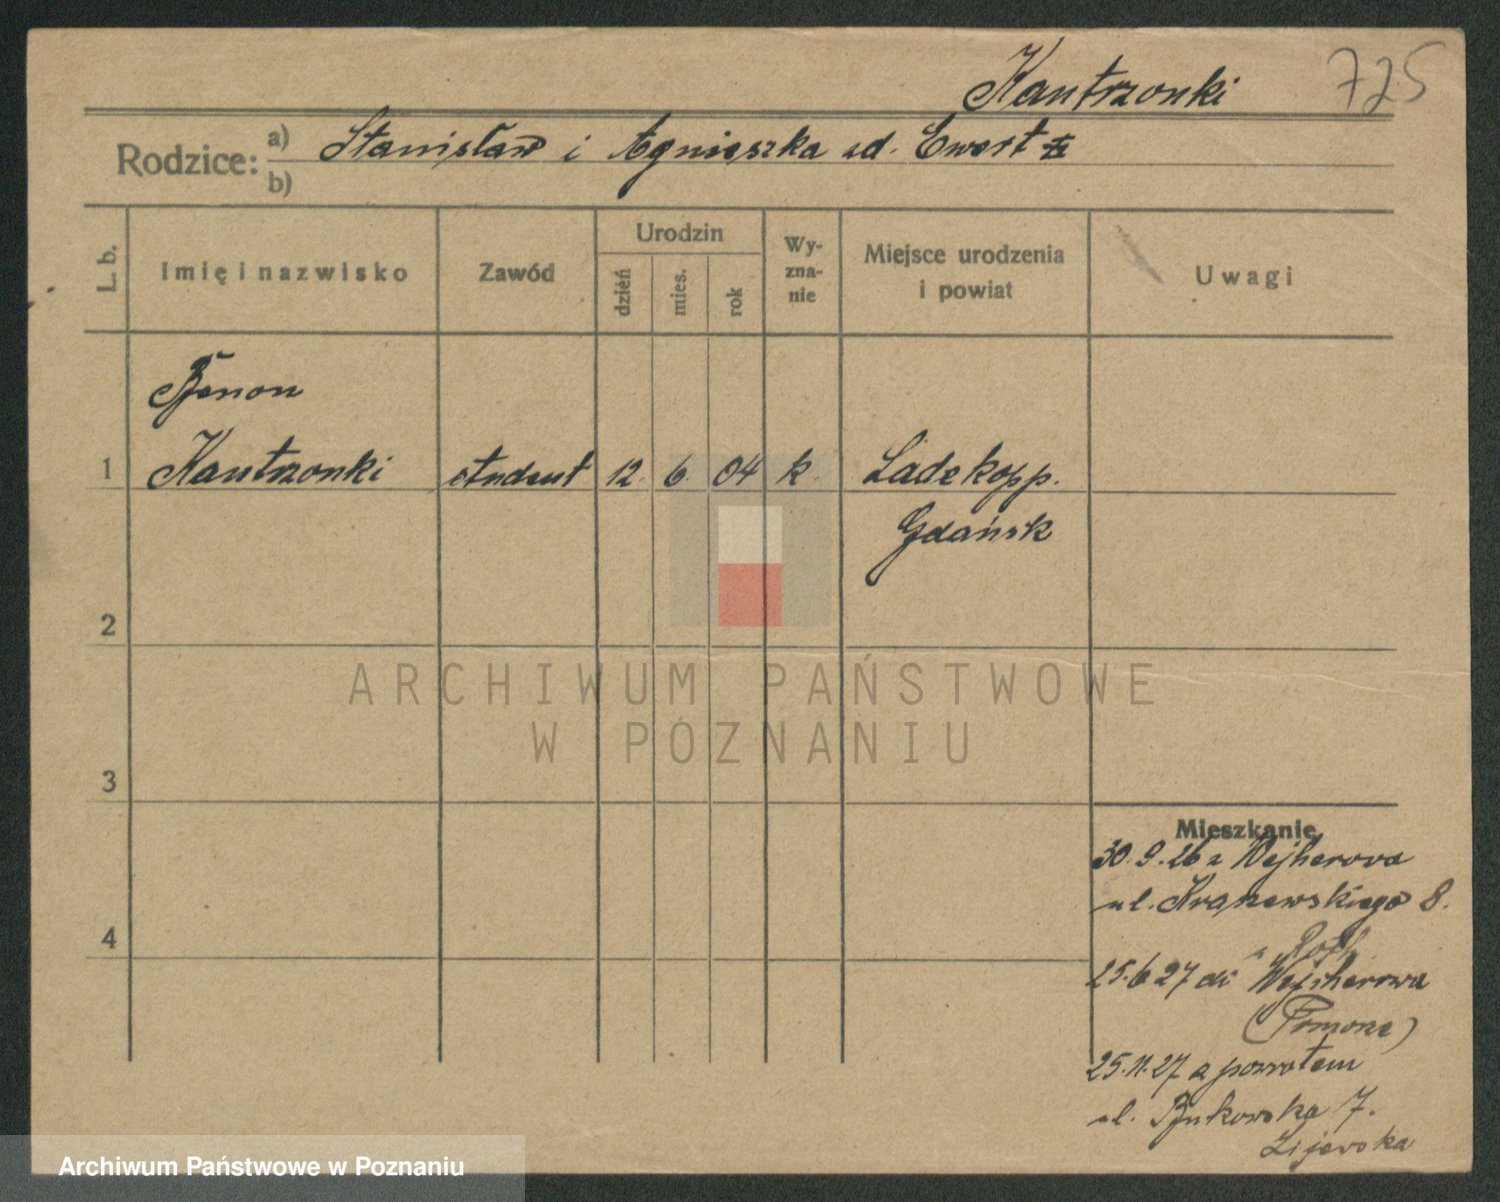 Kantrzonki 725
Rodzice: a) Stanisław i Agnieszka zd. Ewert
b)
L. b. Imię i nazwisko Zawód Urodzin dzień mies. rok Wy-zna-nie Miejsce urodzenia i powiat Uwagi
Benon
1 Kantrzonki student 12. 6. 04 k. Ladekopp.
Gdańsk
2
ARCHIWUM PAŃSTWOWE
W POZNANIU
3
4
Mieszkanie
30.9.26 z Wejherowa
ul. Kraszewskiego 8.
25.6 27 do Wejherowa
(Pomorze)
25.11.27 z powrotem
ul. Bukowska 7.
Archiwum Państwowe w Poznaniu